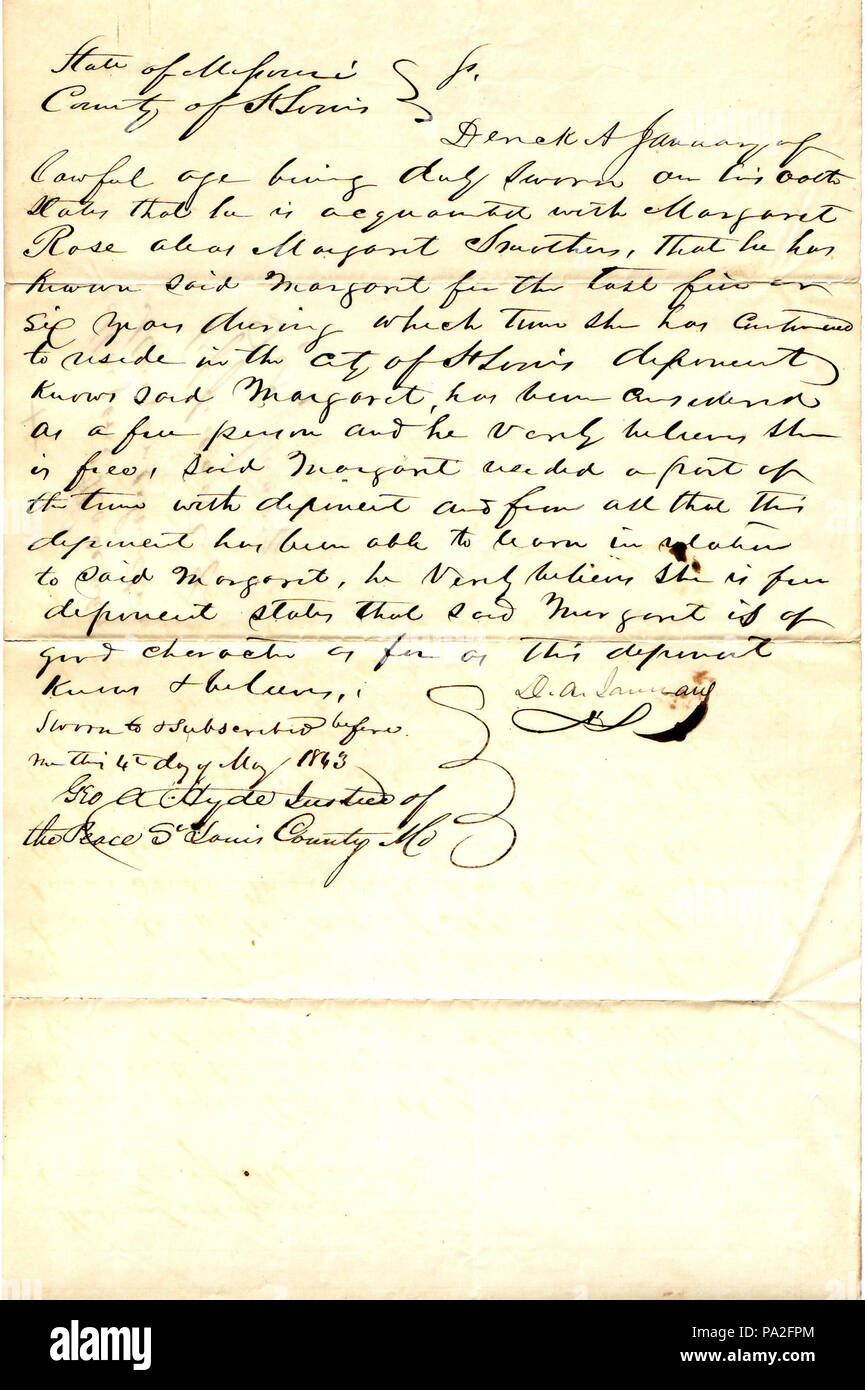 State of Missouri
County of St Louis } ss.
Derick A January of
lawful age being duly sworn on his oath
states that he is acquainted with Margaret
Rose alias Margaret Smothers, that he has
known said Margaret for the last five or
six years during which time she has continued
to reside in the city of St Louis deponent
knows said Margaret, has been considered
as a free person and he verily believes she
is free, said Margaret resided a part of
the time with deponent and from all that this
deponent has been able to learn in relation
to said Margaret, he verily believes she is free
deponent states that said Margaret is of
good character as far as this deponent
knows & believes,
D. A. January
Sworn to & subscribed before
me this 4th day of May 1843
Geo A Hyde Justice of
the Peace St Louis County Mo
alamy
Image ID: PA2FPM
www.alamy.com